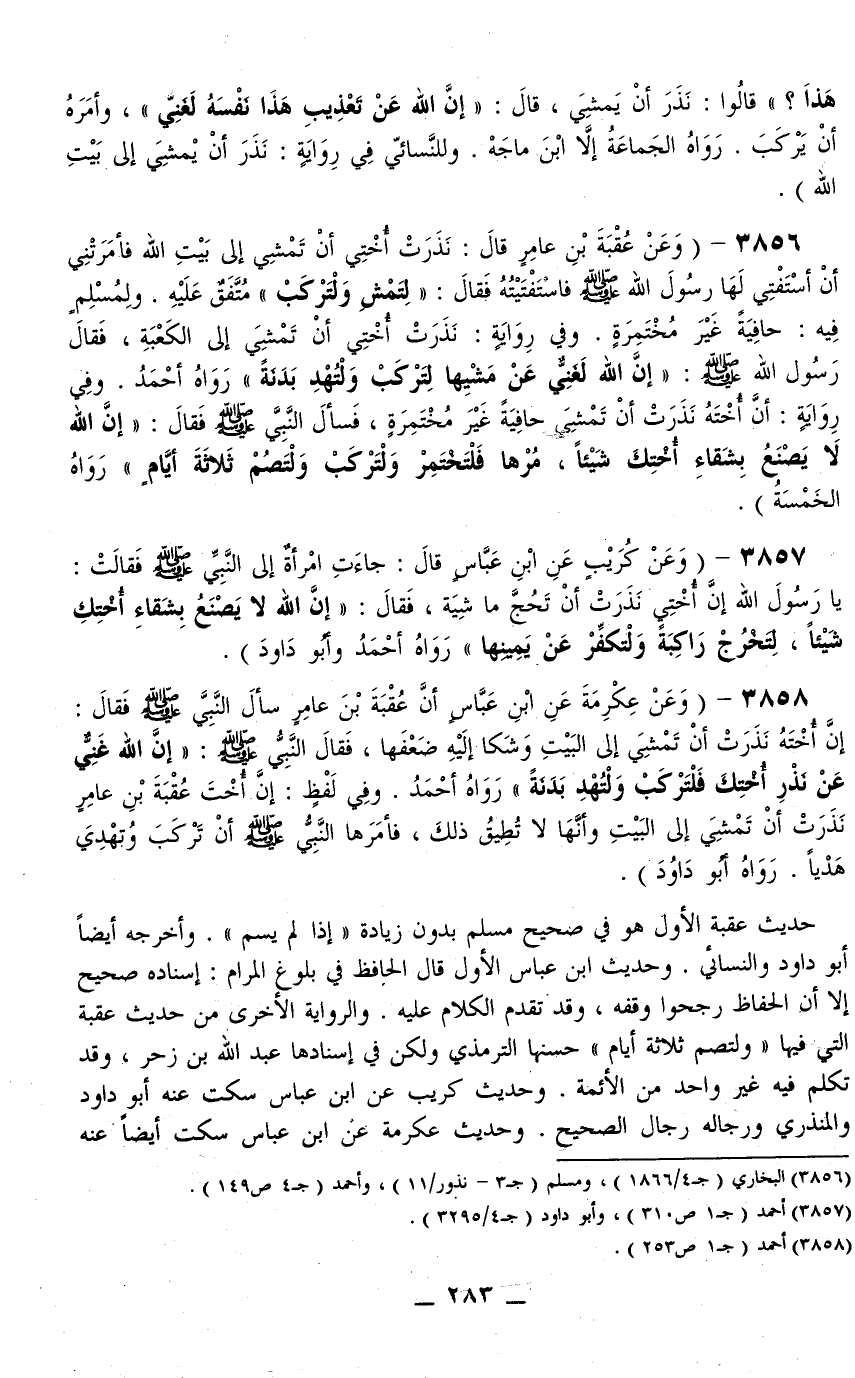 هَذاَ ؟ » قالُوا : نَذَرَ أنْ يَمشِيَ ، قالَ : « إنَّ الله عَنْ تَعْذِيبِ هَذَا نَفْسَهُ لَغَنِيٌّ » ، وأمَرَهُ
أنْ يَرْكَبَ . رَوَاهُ الجَماعَةُ إلَّا ابْنَ ماجَهْ . وللنَّسائيّ فِي رِوَايَةٍ : نَذَرَ أنْ يْمشيَ إلى بَيْتِ
الله ) .
٣٨٥٦ – ( وَعَنْ عُقْبَةَ بْنِ عامِرٍ قالَ : نَذَرَتْ أُخْتِي أنْ تَمْشِي إلى بَيْتِ الله فأمَرَتْنِي
أنْ أسْتَفْتِي لَهَا رسولَ الله ﷺ فاسْتَفْتَيْتُهُ فَقالَ : « لِتَمْشِ وَلْتَرْكَبْ » مُتَّفَقٌ عَلَيْهِ . ولِمُسْلِمٍ
فِيه : حافِيَةً غَيْرَ مُخْتَمِرَةٍ . وفي رِوَايَةٍ : نَذَرَتْ أُخْتِي أنْ تَمْشِيَ إلى الكَعْبَةِ ، فَقالَ
رَسُول الله ﷺ : « إنَّ الله لَغَنِيٌّ عَنْ مَشْيِها لِتَرْكَبْ وَلْتُهْدِ بَدَنَةً » رَوَاهُ أحْمَدُ . وفِي
رِوايَةٍ : أنَّ أُخْتَهُ نَذَرَتْ أنْ تَمْشيَ حافِيَةً غَيْرَ مُخْتَمِرَةٍ ، فَسألَ النَّبِيَّ ﷺ فَقالَ : « إنَّ الله
لَا يَصْنَعُ بِشَقاءِ أُخْتِكَ شَيْئاً ، مُرْها فَلْتَخْتَمِرْ وَلْتَرْكَبْ وَلْتَصُمْ ثَلَاثَةَ أيَّامٍ » رَوَاهُ
الخَمْسَةُ ) .
٣٨٥٧ – ( وَعَنْ كُرَيْبٍ عَنِ ابْنِ عَبَّاسٍ قالَ : جاءَتِ امْرأةٌ إلى النَّبِيِّ ﷺ فَقالَتْ :
يا رَسُولَ الله إنَّ أُخْتِي نَذَرَتْ أنْ تَحُجَّ ما شِيَة ، فَقالَ : « إنَّ الله لا يَصْنَعُ بِشَقاءِ أُخْتِكِ
شَيْئاً ، لِتَخْرُجْ رَاكِبَةً وَلْتكفِّرْ عَنْ يَمِينِها » رَوَاهُ أحْمَدُ وأبُو دَاودَ ) .
٣٨٥٨ – ( وَعَنْ عِكْرِمَةَ عَنِ ابْنِ عَبَّاسٍ أنَّ عُقْبَةَ بْنَ عامِرٍ سألَ النَّبِيَّ ﷺ فَقالَ :
إنَّ أُخْتَهُ نَذَرَتْ أنْ تَمْشِيَ إلى البَيْتِ وَشَكا إلَيْهِ ضَعْفَها ، فَقالَ النَّبِيُّ ﷺ : « إنَّ الله غَنِيٌّ
عَنْ نَذْرِ أُخْتِكَ فَلْتَرْكَبْ وَلْتُهْدِ بَدَنَةً » رَوَاهُ أحْمَدُ . وفِي لَفْظٍ : إنَّ أُخْتَ عُقْبَةَ بْنِ عامِرٍ
نَذَرَتْ أنْ تَمْشِيَ إلى البَيْتِ وأنَّهَا لَا تُطِيقُ ذلكَ ، فأمَرَها النَّبِيُّ ﷺ أنْ تَرْكَبَ وَتُهْدِيَ
هَدْياً . رَوَاهُ أبُو دَاوُدَ ) .
حديث عقبة الأول هو في صحيح مسلم بدون زيادة « إذا لم يسم » . وأخرجه أيضاً
أبو داود والنسائي . وحديث ابن عباس الأول قال الحافظ في بلوغ المرام : إسناده صحيح
إلا أن الحفاظ رجحوا وقفه ، وقد تقدم الكلام عليه . والرواية الأخرى من حديث عقبة
التي فيها « ولتصم ثلاثة أيام » حسنها الترمذي ولكن في إسنادها عبد الله بن زحر ، وقد
تكلم فيه غير واحد من الأئمة . وحديث كريب عن ابن عباس سكت عنه أبو داود
والمنذري ورجاله رجال الصحيح . وحديث عكرمة عن ابن عباس سكت أيضاً عنه
(٣٨٥٦) البخاري ( جـ٤/١٨٦٦ ) ، ومسلم ( جـ٣ – نذور/١١ ) ، وأحمد ( جـ٤ ص١٤٩ ) .
(٣٨٥٧) أحمد ( جـ١ ص٣١٠ ) ، وأبو داود ( جـ٤/٣٢٩٥ ) .
(٣٨٥٨) أحمد ( جـ١ ص٢٥٣ ) .
_ ٢٨٣ _